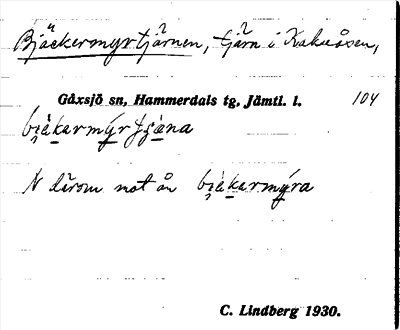 Bjäckermyrtjärnen, tjärn i Kakuåsen,
Gåxsjö sn, Hammerdals tg, Jämtl. l. 104
N därom mot ån
C. Lindberg 1930.